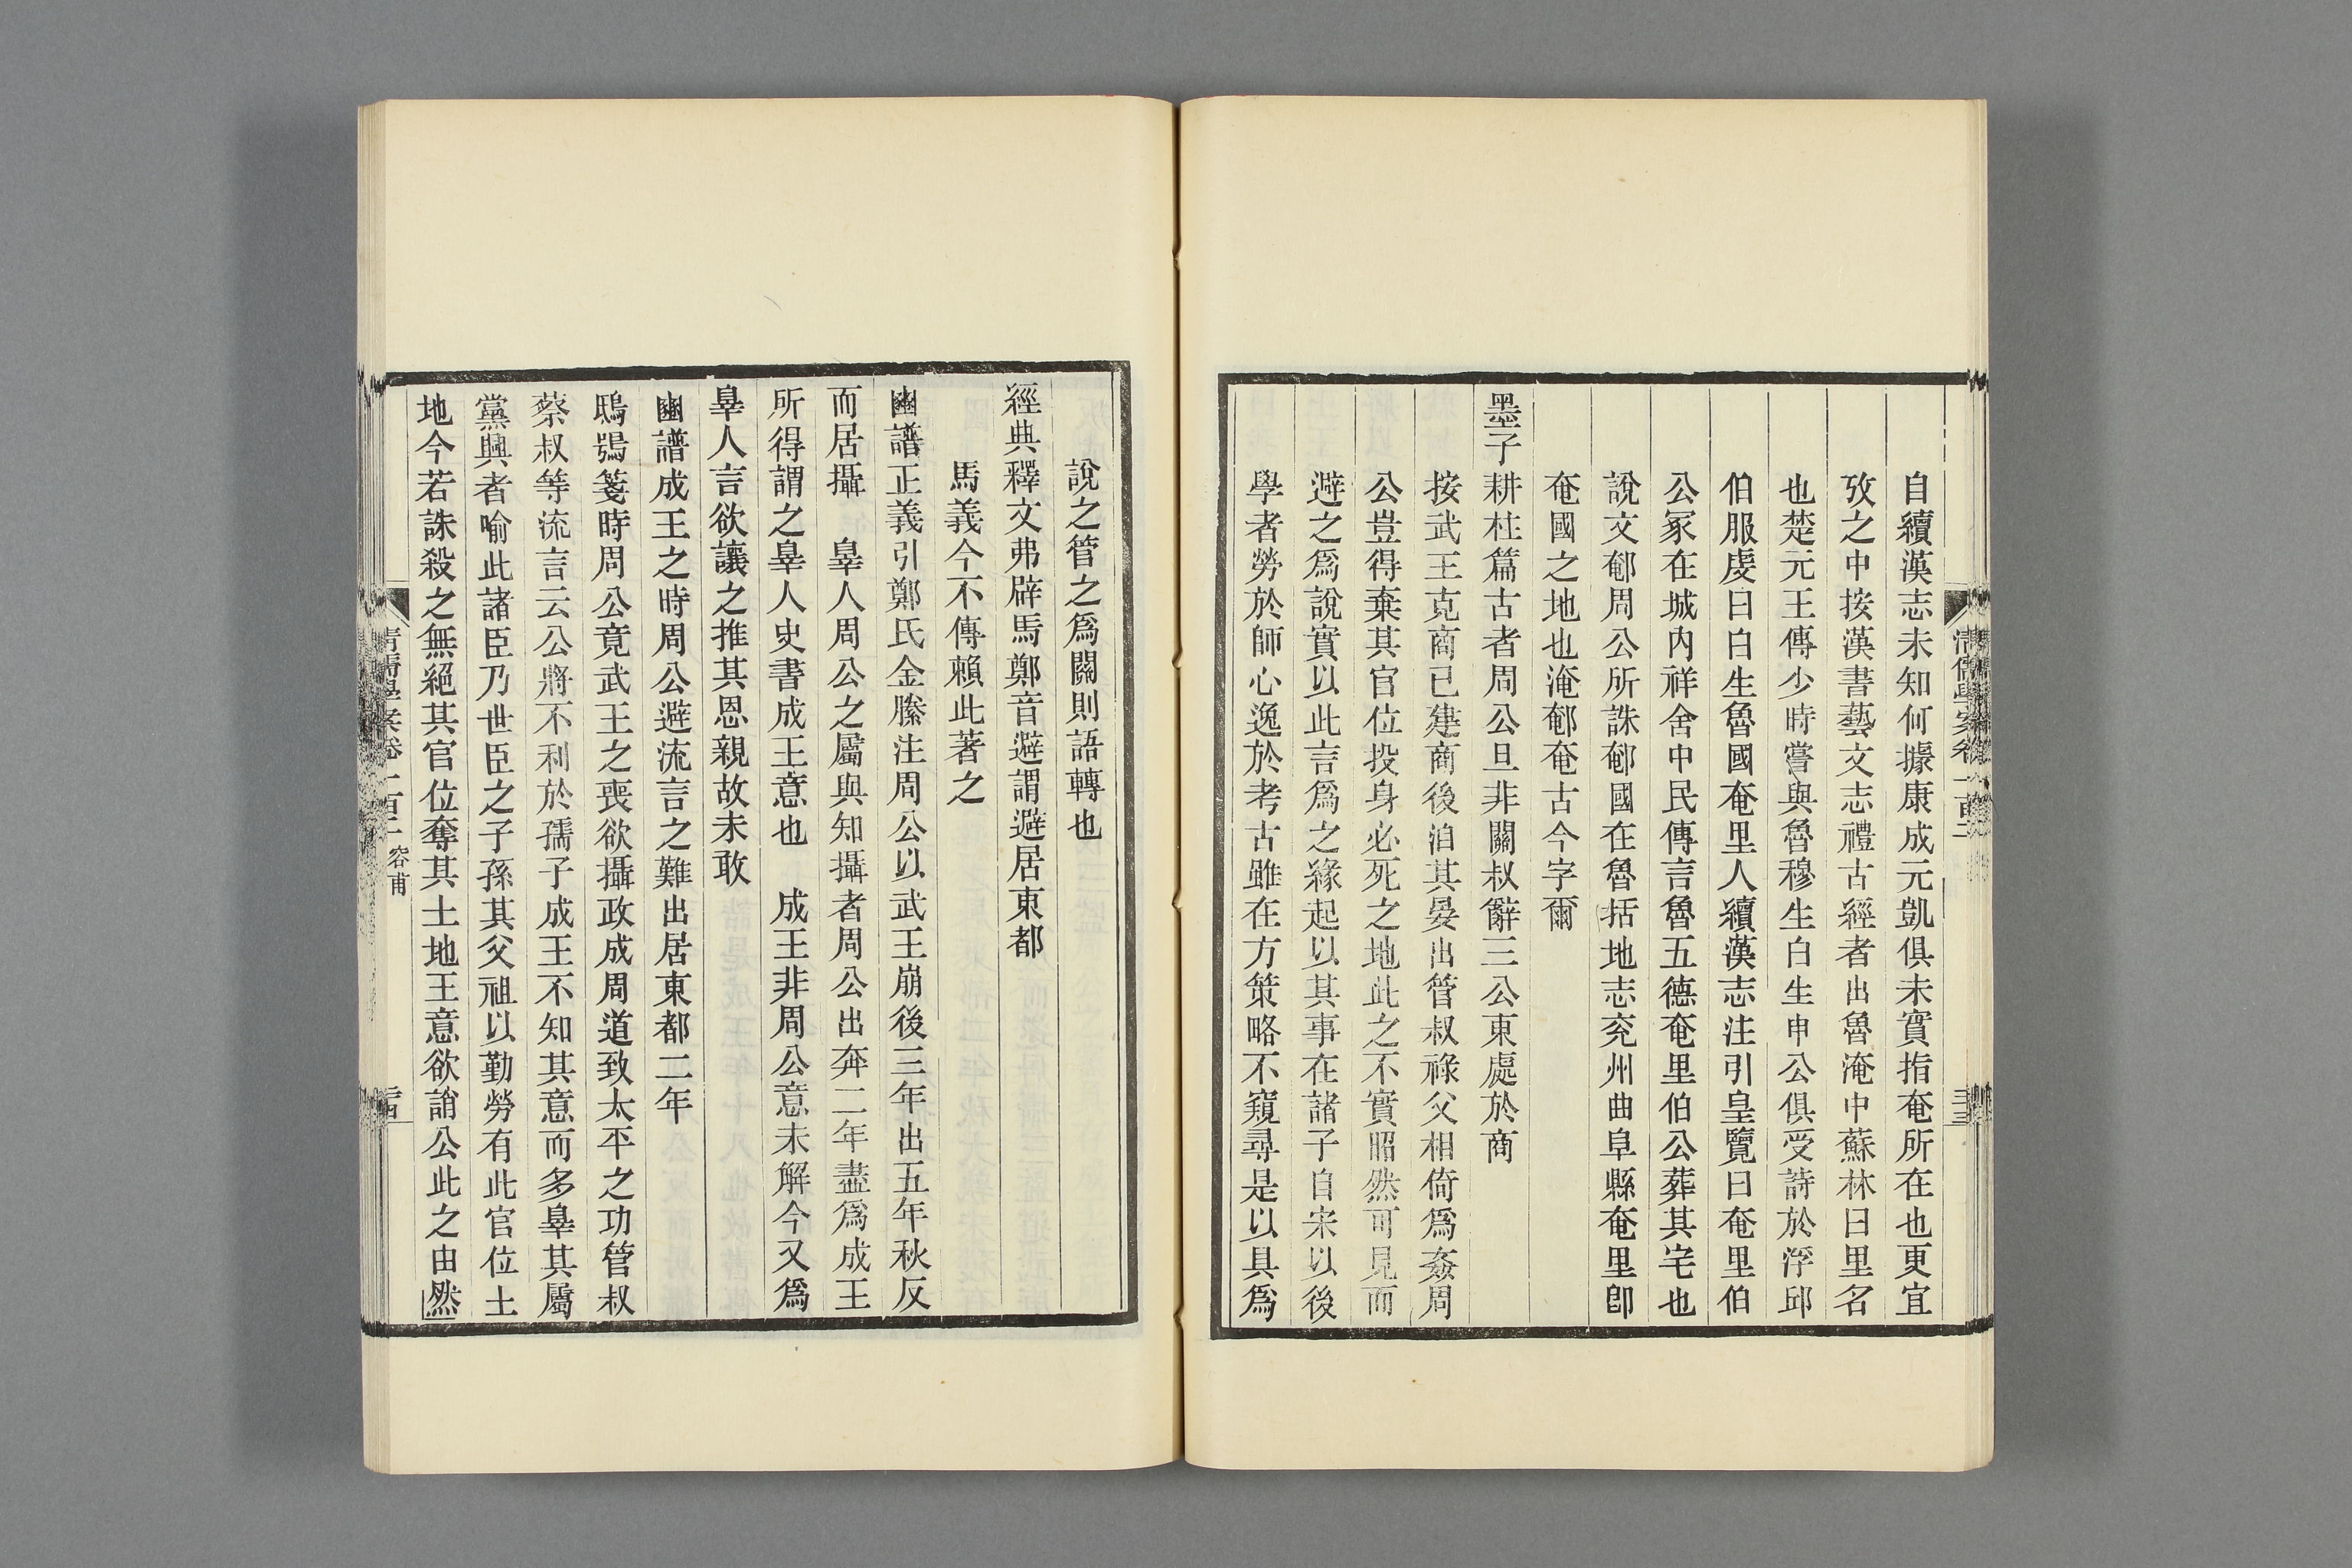 自續漢志未知何據康成元凱俱未實指奄所在也更宜
攷之中按漢書藝文志禮古經者出魯淹中蘇林曰里名
也楚元王傳少時嘗與魯穆生白生申公俱受詩於浮邱
伯服虔曰白生魯國奄里人續漢志注引皇覽曰奄里伯
公冢在城內祥舍中民傳言魯五德奄里伯公葬其宅也
說文郁周公所誅郁國在魯括地志兖州曲阜縣奄里卽
奄國之地也淹郁奄古今字爾
墨子耕柱篇古者周公旦非關叔辭三公東處於商
按武王克商已建商後洎其晏出管叔祿父相倚爲姦周
公豈得棄其官位投身必死之地此之不實昭然可見而
避之爲說實以此言爲之緣起以其事在諸子自宋以後
學者勞於師心逸於考古雖在方策略不窺尋是以具爲
清儒學案卷一百二
三三
說之管之爲關則語轉也
經典釋文弗辟馬鄭音避謂避居東都
馬義今不傳賴此著之
豳譜正義引鄭氏金縢注周公以武王崩後三年出五年秋反
而居攝 辠人周公之屬與知攝者周公出奔二年盡爲成王
所得謂之辠人史書成王意也 成王非周公意未解今又爲
辠人言欲讓之推其恩親故未敢
豳譜成王之時周公避流言之難出居東都二年
鴟鴞箋時周公竟武王之喪欲攝政成周道致太平之功管叔
蔡叔等流言云公將不利於孺子成王不知其意而多辠其屬
黨興者喻此諸臣乃世臣之子孫其父祖以勤勞有此官位土
地今若誅殺之無絕其官位奪其土地王意欲誚公此之由然
清儒學案卷一百二 容甫